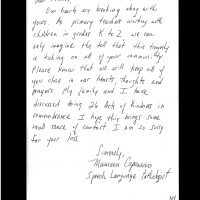 Our hearts are breaking along with
yours. As primary teachers working with
children in grades K to 2 we can
only imagine the toll that this tragedy
is taking on all of your community.
Please know that we will keep all of
you close in our hearts, thoughts and
prayers. My family and I have
discussed doing 26 Acts of Kindness in
remembrance. I hope this brings some
small sense of comfort. I am so sorry
for your loss.
Sincerely,
Maureen
Speech Language Pathologist
NY